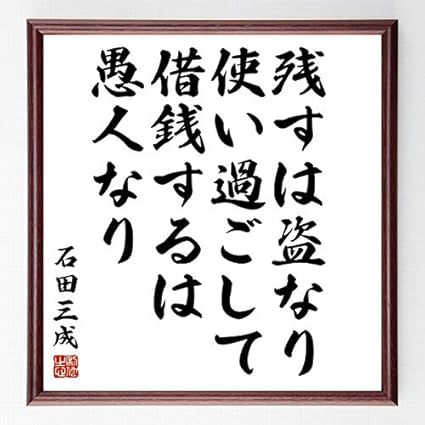 残すは盗なり
使い過ごして
借銭するは
愚人なり
石田三成